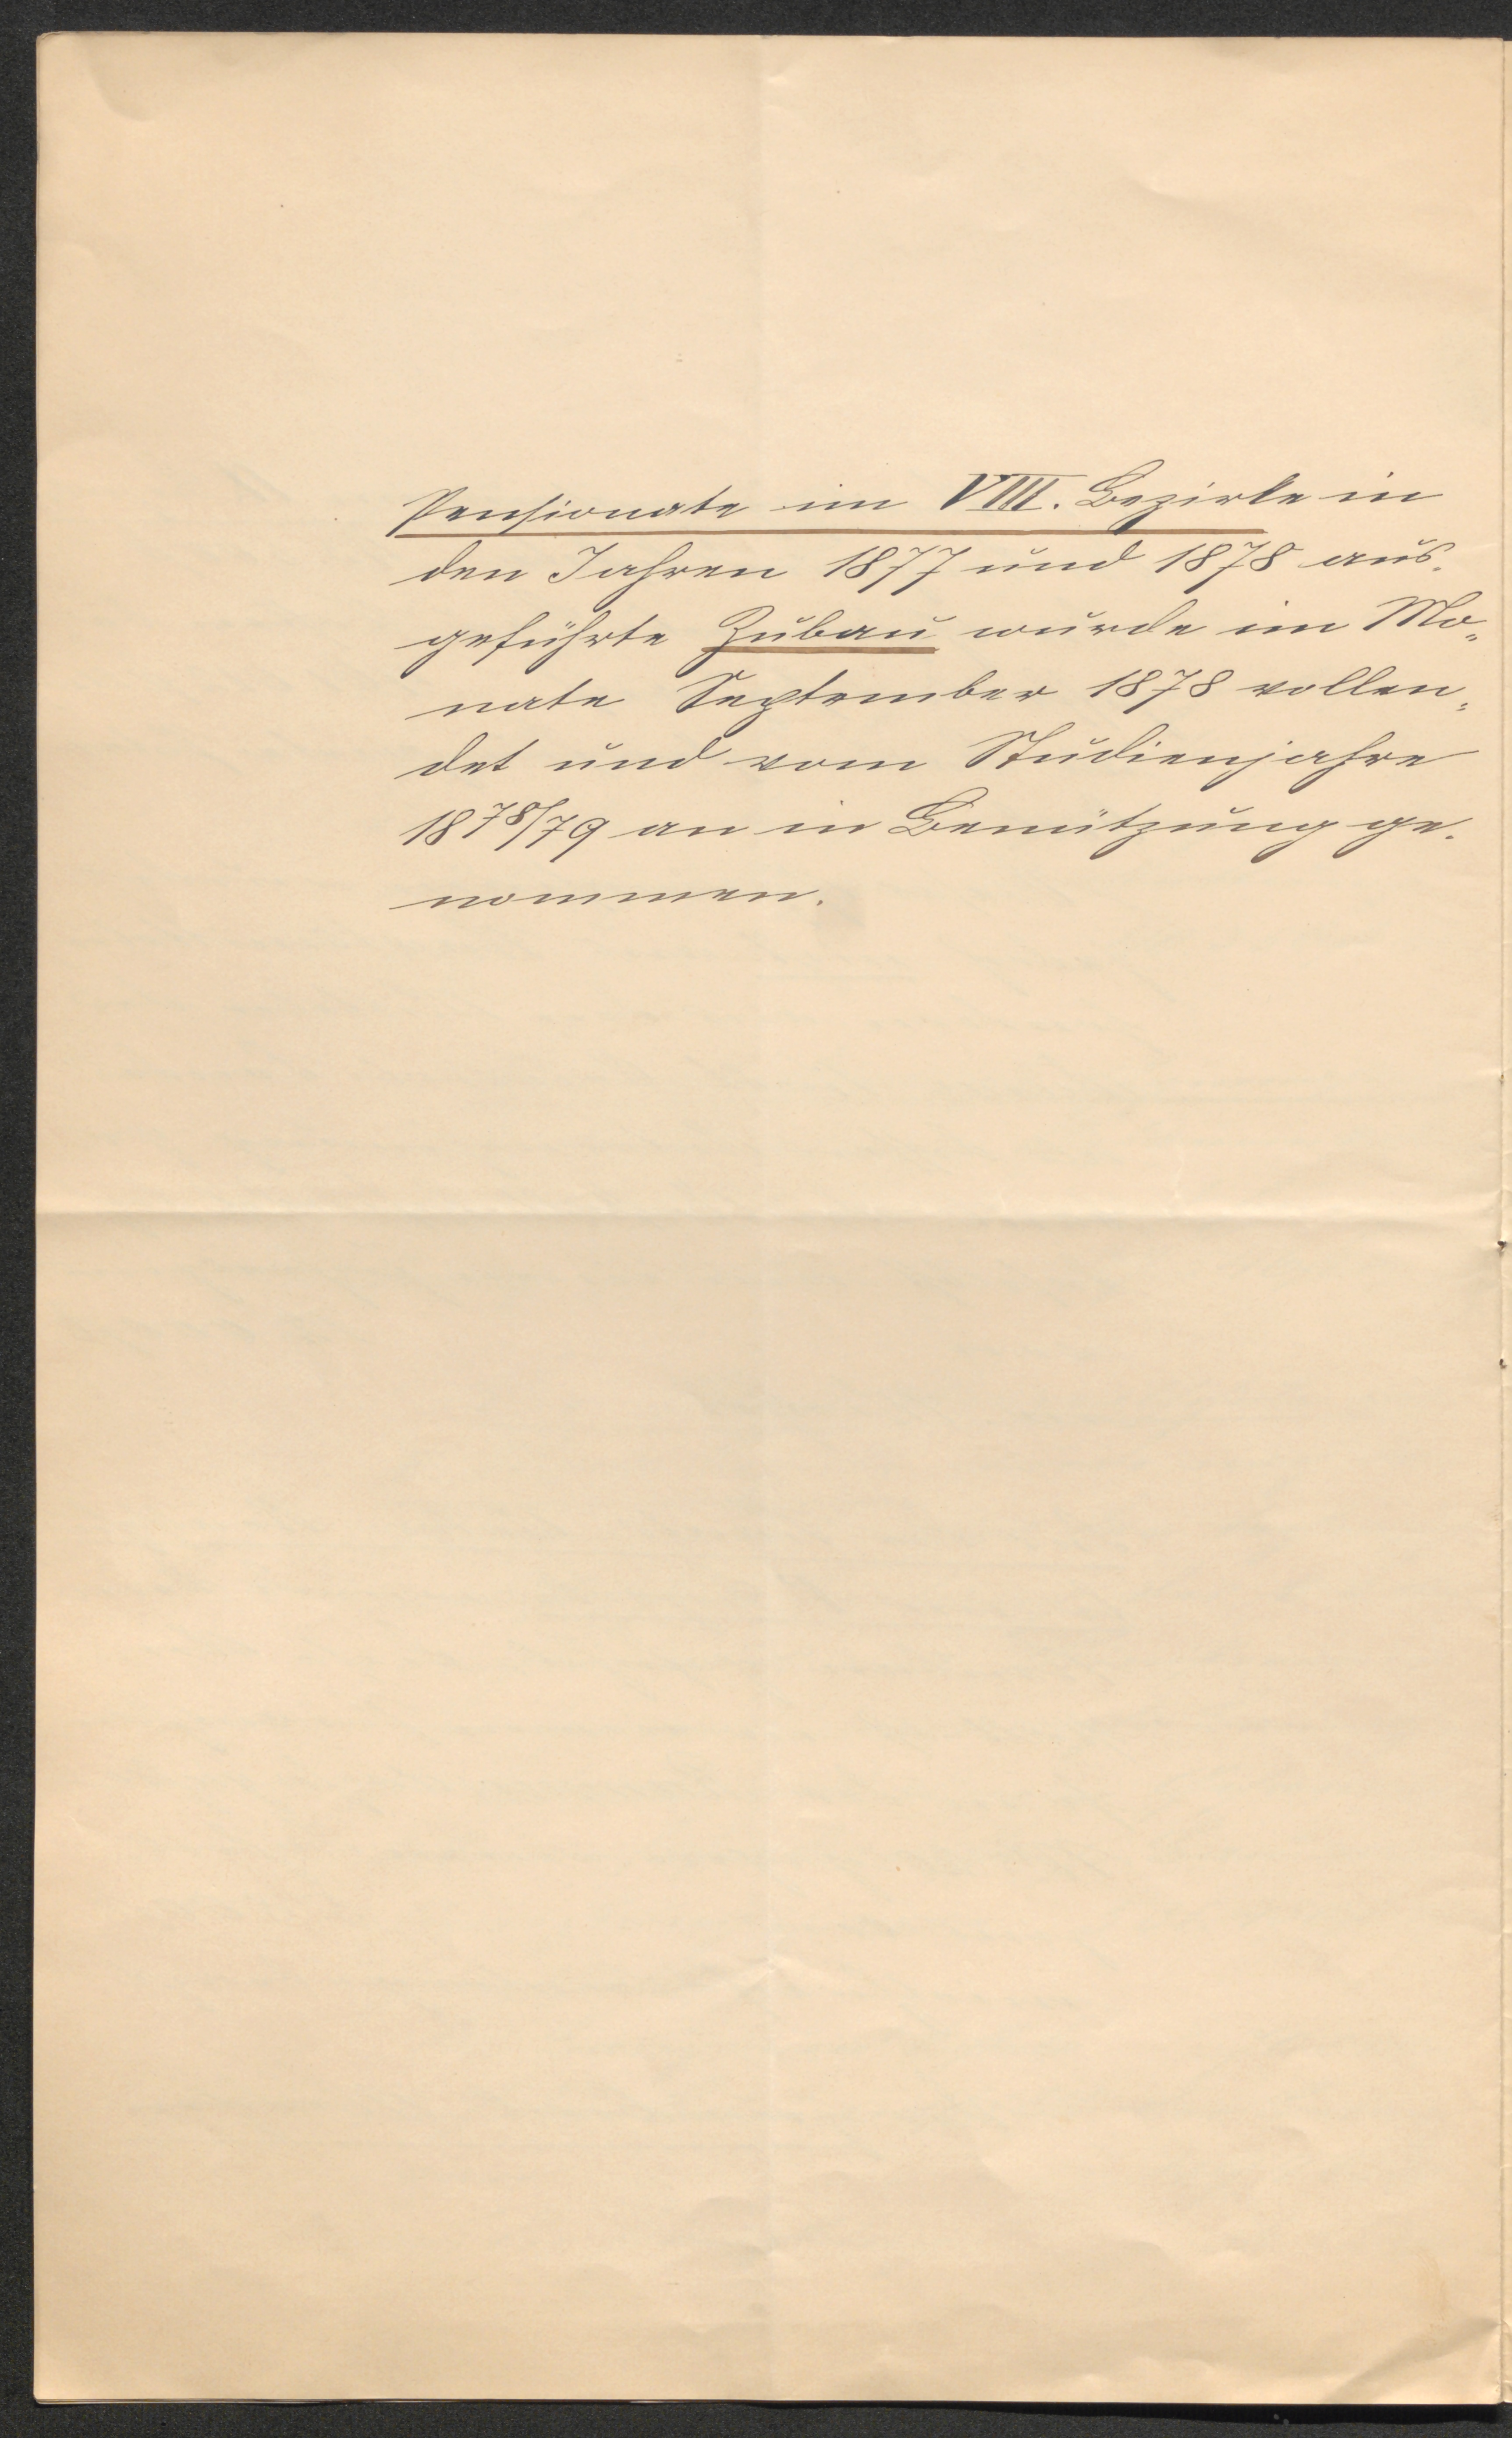 Pensionate im VIII. Bezirke in
den Jahren 1877 und 1878 aus-
geführte Zubau wurde im Mo-
nate September 1878 vollen-
det und vom Studienjahre
1878/79 an in Benützung ge-
nommen.